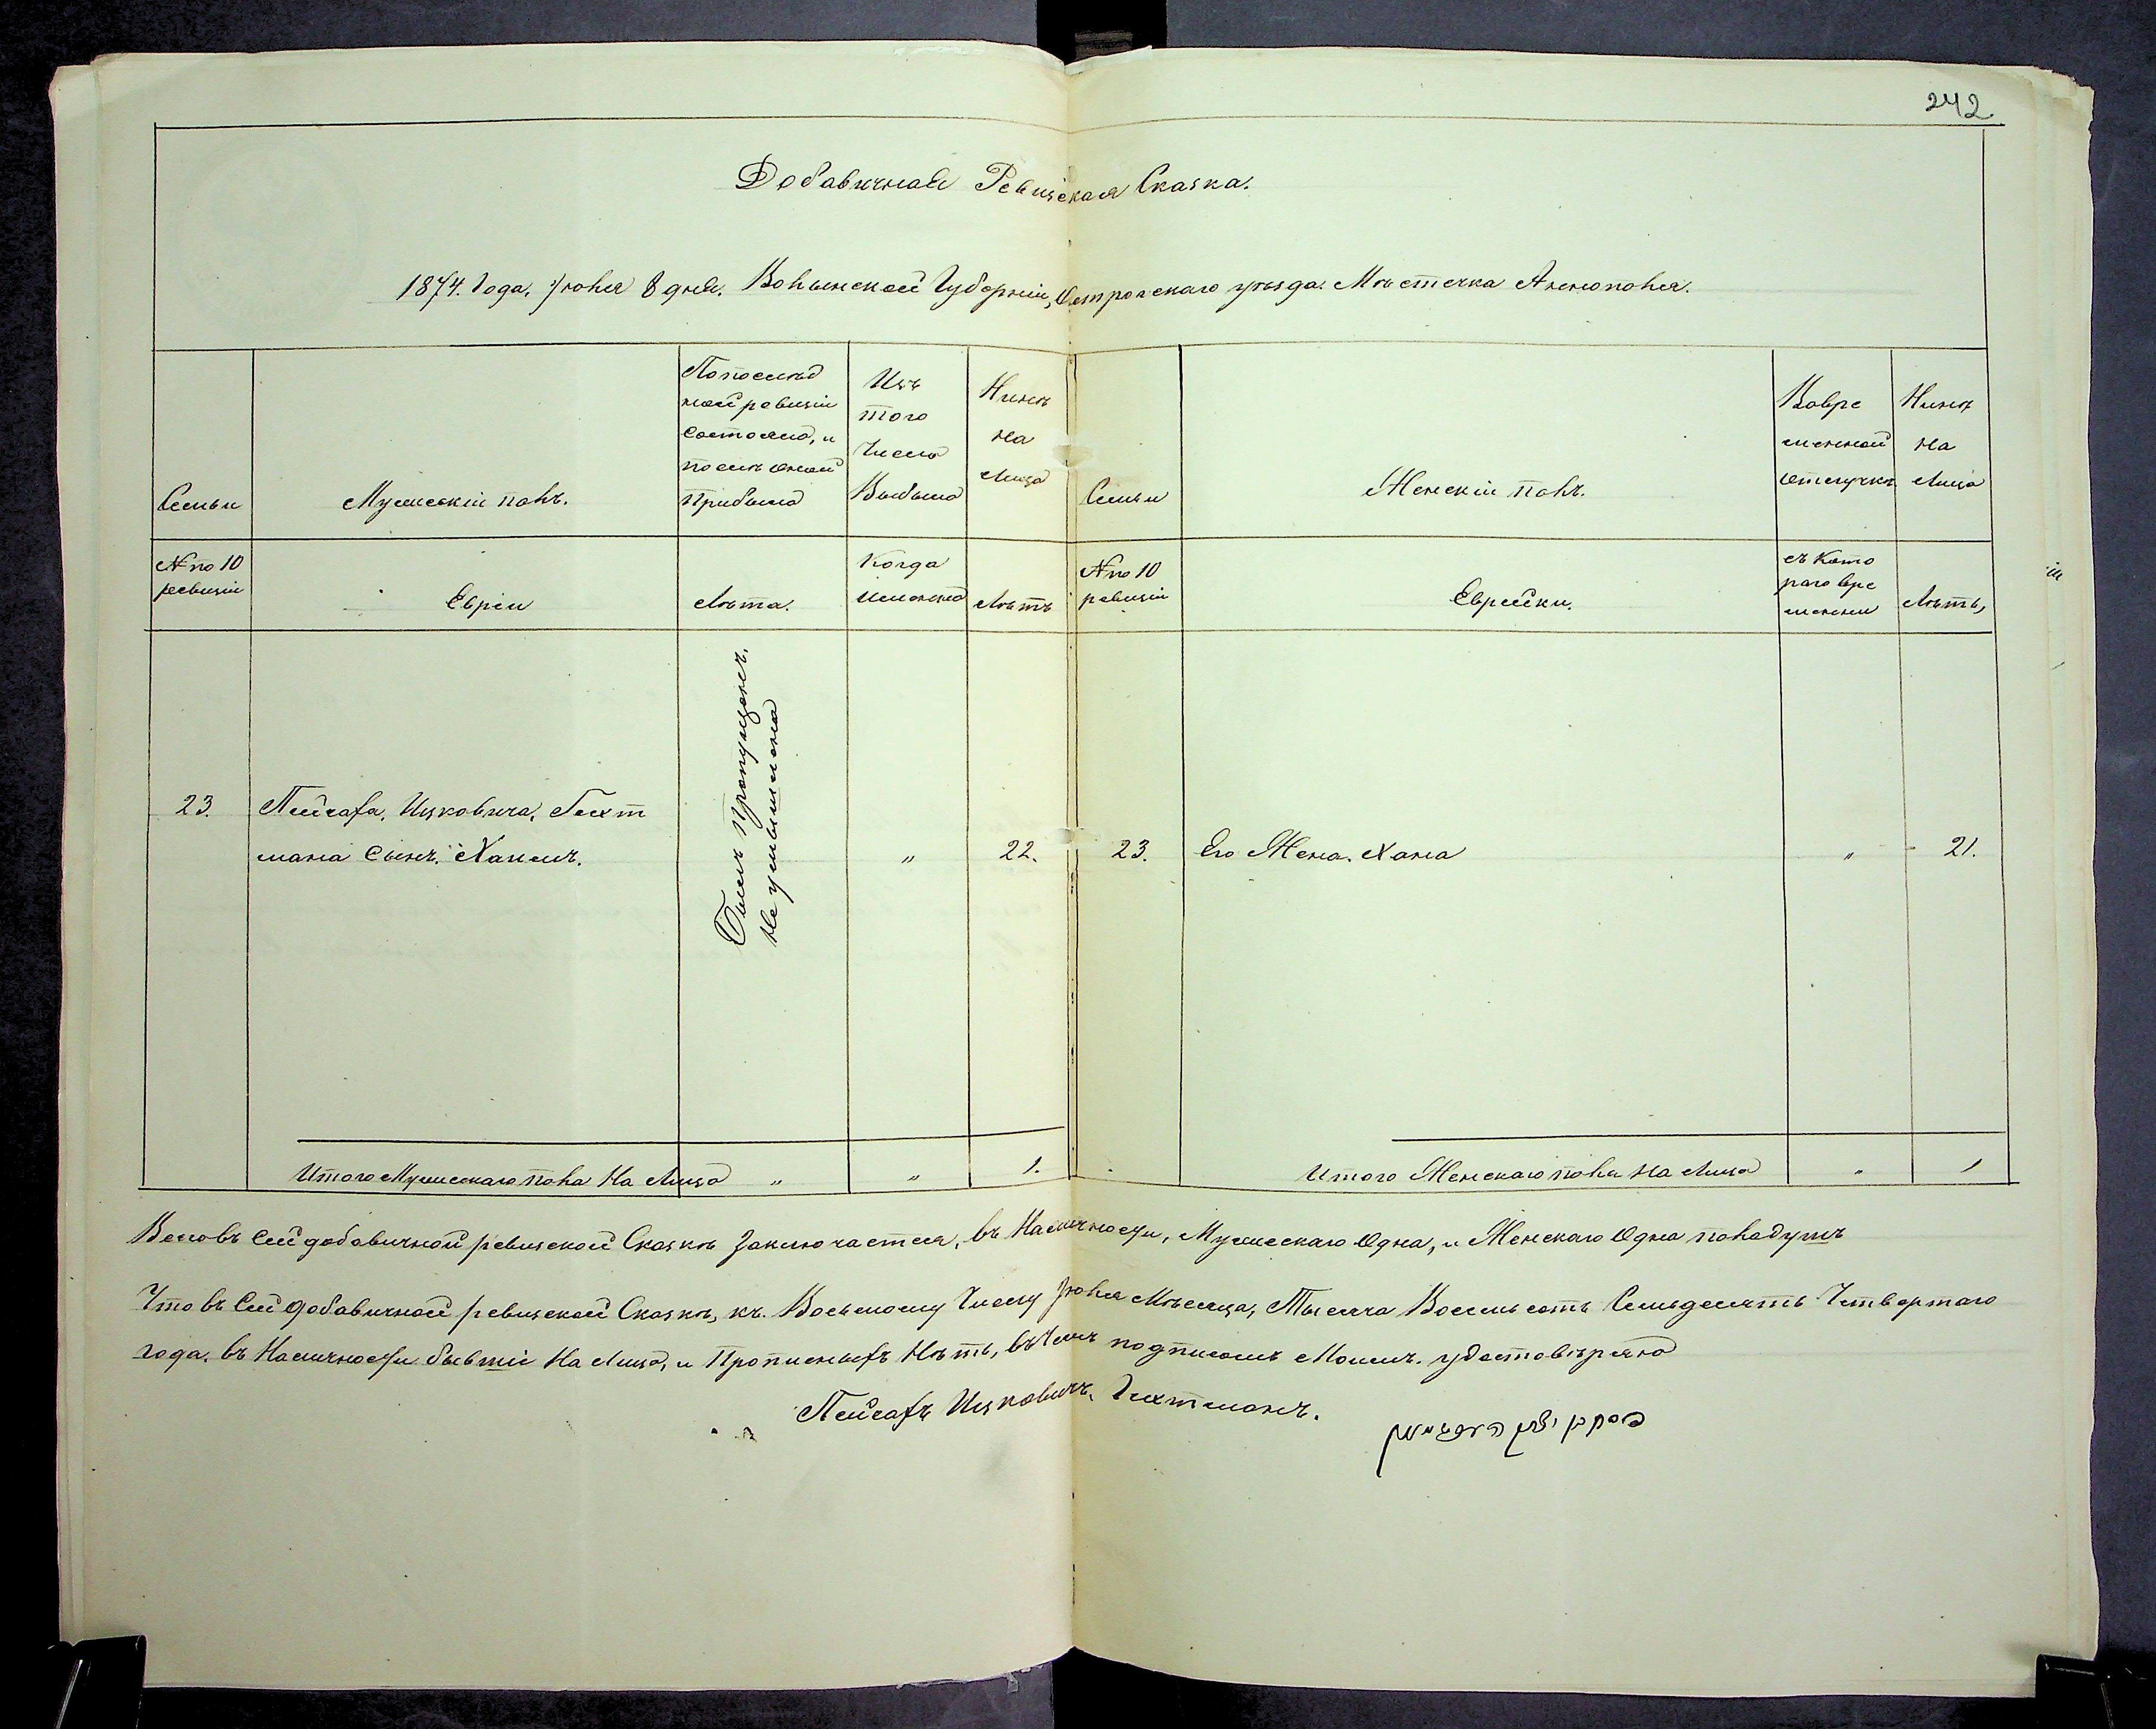 242.
Добавичная Ревизская Сказка.
1874. Года. Іюня 8 дня. Волынской Губерніи, Острогскаго уѣзда. Мѣстечка Аннополя.
Семьи
Мужескій полъ.
По послѣд
ней ревизіи
состояло, и
послѣ оной
прибыло
Изъ
того
Числа
Выбыло
Нынѣ
на
лицо
Семьи
Женскій полъ.
Вовре
менной
отлучкѣ
Нынѣ
на
лицо
№ по 10
ревизіи
Евреи
Лѣта.
Когда
именно
Лѣтъ
№ по 10
ревизіи
Еврейки.
съ Кото
раго вре
мени
Лѣтъ,
23. Пейсаха, Ицковича, Гехт
мана Сынъ. Хаимъ.
Былъ пропущенъ.
не умышленно
" 22.
23. Его Жена. Хана " 21.
Итого Мужескаго пола На Лицо " " 1.
Итого Женскаго пола На Лицо " 1
Всего въ сей добавичной ревизской Сказкѣ Заключается, въ Наличности, Мужескаго Одна, и Женскаго Одна пола душъ
Что въ Сей добавичной ревизской Сказкѣ, къ. Восьмому Числу Іюня Мѣсяца, Тысяча Восемь сотъ Семьдесятъ Четвертаго
года. въ Наличности бывшіе На Лицо, и Прописныхъ Нѣтъ, въ Чемъ подписомъ Моимъ. удостовѣряю
Пейсахъ Ицковичъ. Гехтманъ.